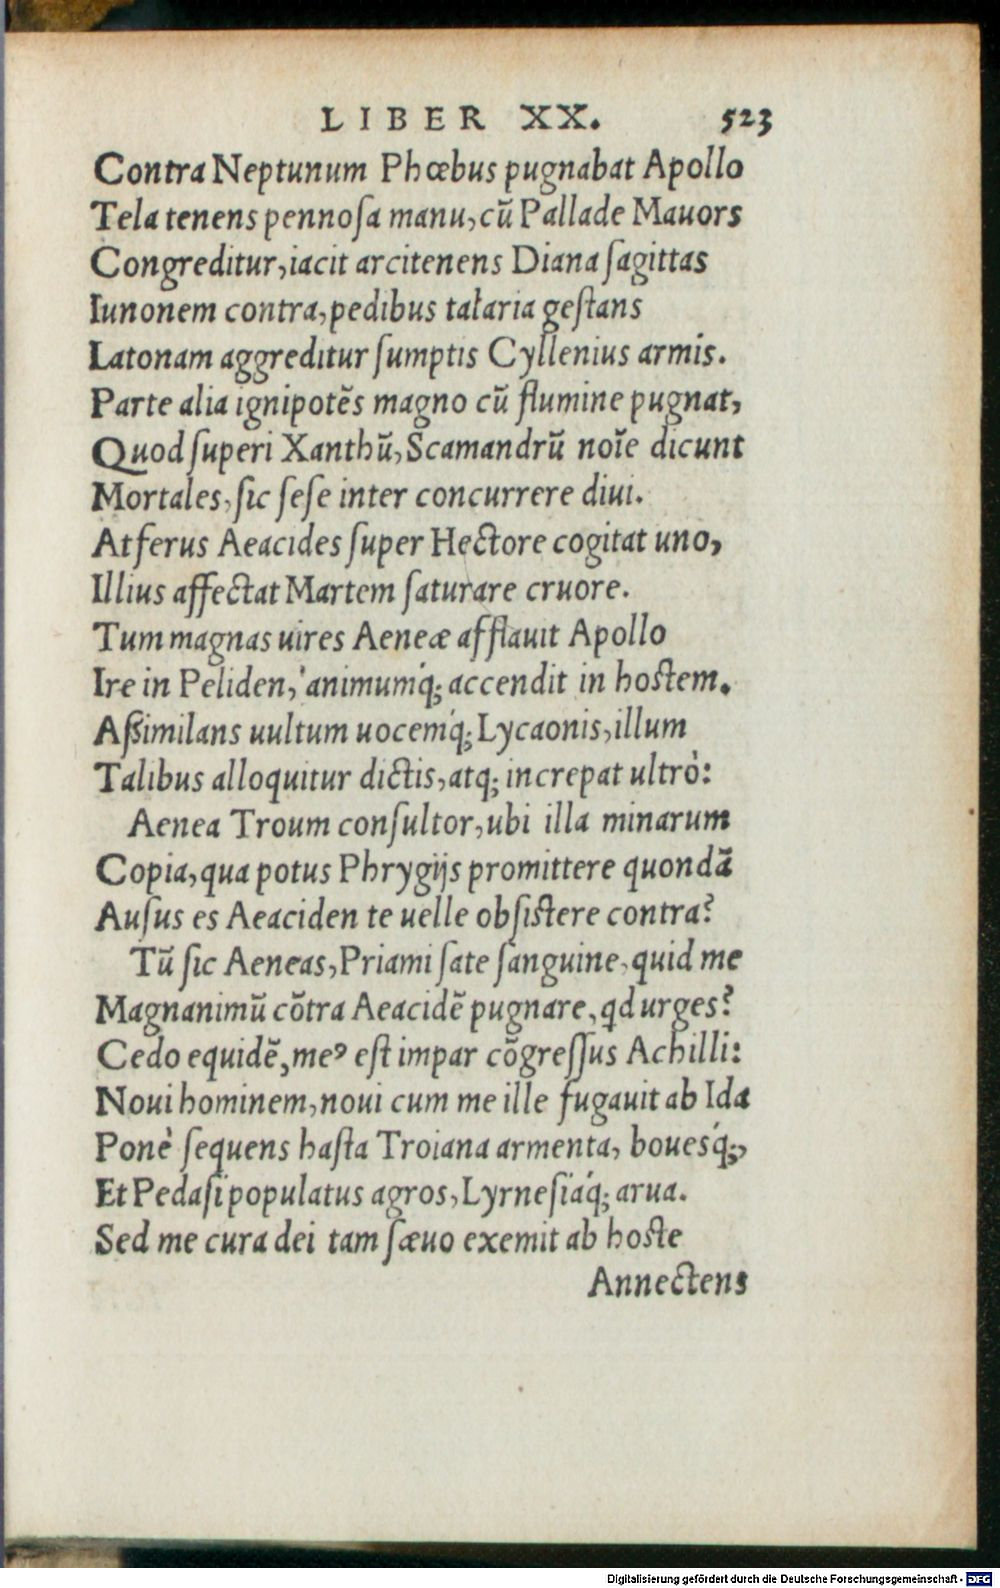 LIBER XX. 523
Contra Neptunum Phœbus pugnabat Apollo
Tela tenens pennoſa manu, cū Pallade Mauors
Congreditur, iacit arcitenens Diana ſagittas
Iunonem contra, pedibus talaria geſtans
Latonam aggreditur ſumptis Cyllenius armis.
Parte alia ignipotēs magno cū flumine pugnat,
Quod ſuperi Xanthū, Scamandrū noīe dicunt
Mortales, ſic ſeſe inter concurrere diui.
At ferus Aeacides ſuper Hectore cogitat uno,
Illius affectat Martem ſaturare cruore.
Tum magnas uires Aeneæ afflauit Apollo
Ire in Peliden, animumq́; accendit in hoſtem.
Aßimilans uultum uocemq́; Lycaonis, illum
Talibus alloquitur dictis, atq; increpat ultrò:
Aenea Troum conſultor, ubi illa minarum
Copia, qua potus Phrygijs promittere quondā
Auſus es Aeaciden te uelle obſiſtere contra?
Tū ſic Aeneas, Priami ſate ſanguine, quid me
Magnanimū cōtra Aeacidē pugnare, qd urges?
Cedo equidē, meꝰ eſt impar cōgreſſus Achilli:
Noui hominem, noui cum me ille fugauit ab Ida
Ponè ſequens haſta Troiana armenta, bouesq́;,
Et Pedaſi populatus agros, Lyrneſiaq́; arua.
Sed me cura dei tam ſæuo exemit ab hoſte
Annectens
Digitalisierung gefördert durch die Deutsche Forschungsgemeinschaft - DFG